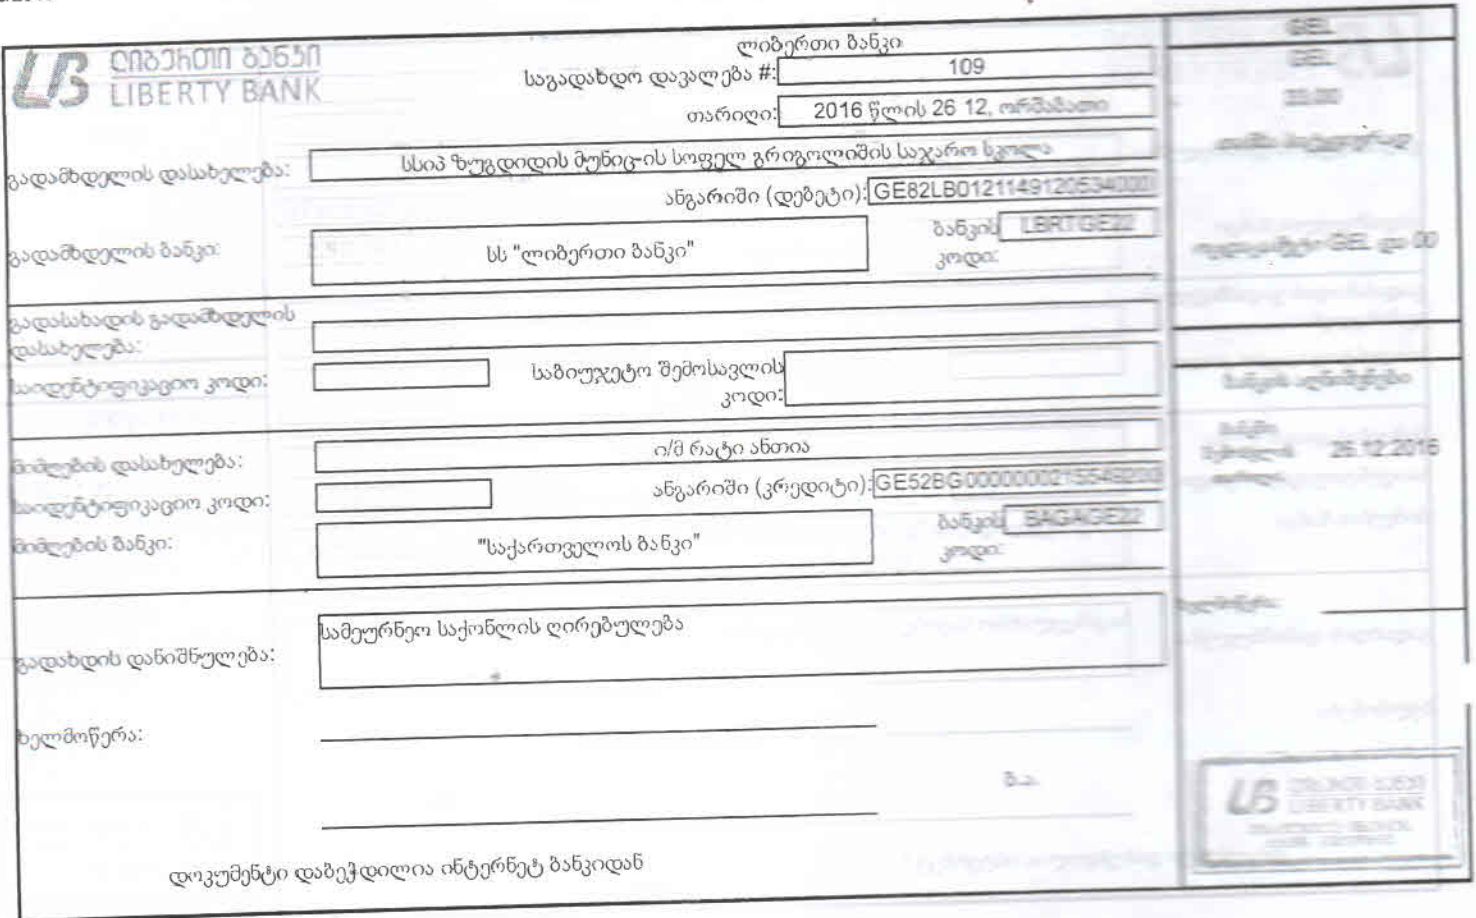 ᲚᲘᲑᲔᲠᲗᲘ ᲑᲐᲜᲙᲘ
LIBERTY BANK
ლიბერთი ბანკი
საგადახდო დავალება #: 109
თარიღი: 2016 წლის 26 12, ორშაბათი
გადამხდელის დასახელება: სსიპ ზუგდიდის მუნიც-ის სოფელ გრიგოლიშის საჯარო სკოლა
ანგარიში (დებეტი): GE82LB0121149120534000
გადამხდელის ბანკი: სს "ლიბერთი ბანკი"
ბანკის კოდი: LBRTGE22
გადასახადის გადამხდელის დასახელება:
საიდენტიფიკაციო კოდი:
საბიუჯეტო შემოსავლის კოდი:
მიმღების დასახელება: ი/მ რატი ანთია
საიდენტიფიკაციო კოდი:
ანგარიში (კრედიტი):
მიმღების ბანკი: "საქართველოს ბანკი"
ბანკის კოდი: BAGAGE22
გადახდის დანიშნულება: სამეურნეო საქონლის ღირებულება
ხელმოწერა:
ბ.ა.
დოკუმენტი დაბეჭდილია ინტერნეტ ბანკიდან
GEL
GEL
ბანკის აღნიშვნები
26.12.2016
ხელმოწერა:
LIBERTY BANK